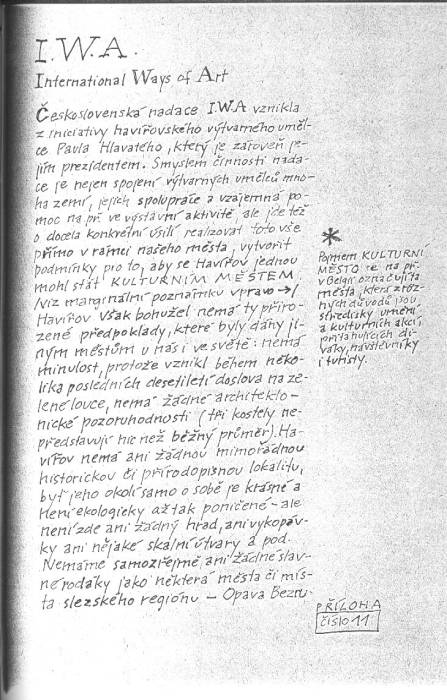 I.W.A.
International Ways of Art
Československá nadace I.W.A vznikla
z iniciativy havířovského výtvarného uměl-
ce Pavla Hlavatého, který je zároveň je-
jím prezidentem. Smyslem činnosti nada-
ce je nejen spojení výtvarných umělců mno-
ha zemí, jejich spolupráce a vzájemná po-
moc na př. ve výstavní aktivitě, ale jde též
o docela konkrétní úsilí realizovat toto vše
přímo v rámci našeho města, vytvořit
podmínky pro to, aby se Havířov jednou
mohl stát KULTURNÍM MĚSTEM.
/viz marginální poznámku vpravo →/
Havířov však bohužel nemá ty přiro-
zené předpoklady, které byly dány ji-
ným městům u nás i ve světě: nemá
minulost, protože vznikl během něko-
lika posledních desetiletí doslova na ze-
lené louce, nemá žádné architekto-
nické pozoruhodnosti (tři kostely ne-
představují nic než běžný průměr). Ha-
vířov nemá ani žádnou mimořádnou
historickou či přírodopisnou lokalitu,
byť jeho okolí samo o sobě je krásné a
není ekologicky až tak poničené - ale
není zde ani žádný hrad, ani vykopáv-
ky ani nějaké skalní útvary a pod.
Nemáme samozřejmě ani žádné slav-
né rodáky jako některá města či mís-
ta slezského regionu – Opava Bezru-
*
Pojmem KULTURNÍ
MĚSTO se na př.
v Belgii označují ta
města, která z růz-
ných důvodů jsou
středisky umění
a kulturních akcí
přitahujících di-
váky, návštěvníky
i turisty.
PŘÍLOHA
ČÍSLO 11